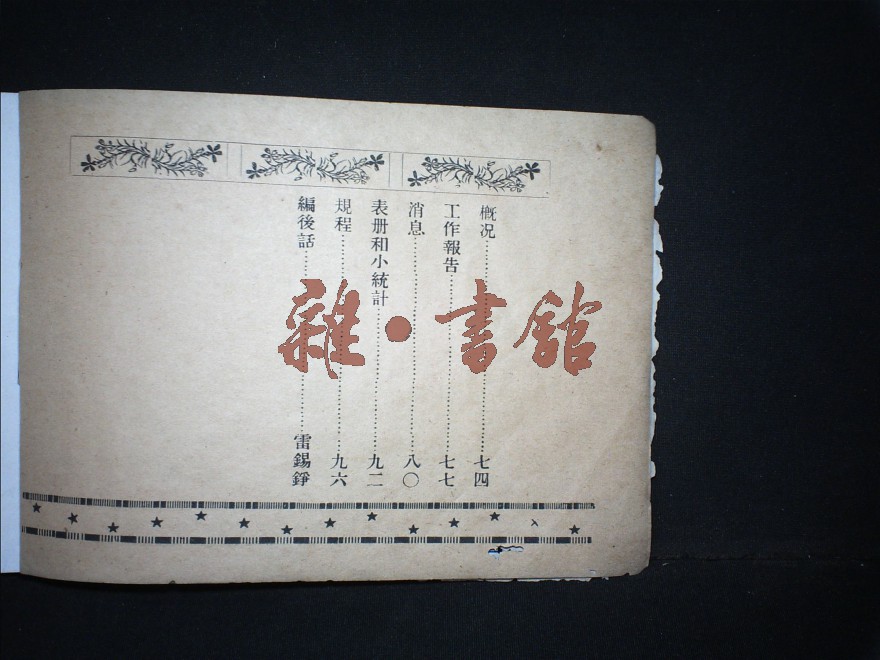 概况……七四
工作報告……七七
消息……八〇
表册和小統計……九二
規程……九六
編後話……雷錫錚
雜·書舘